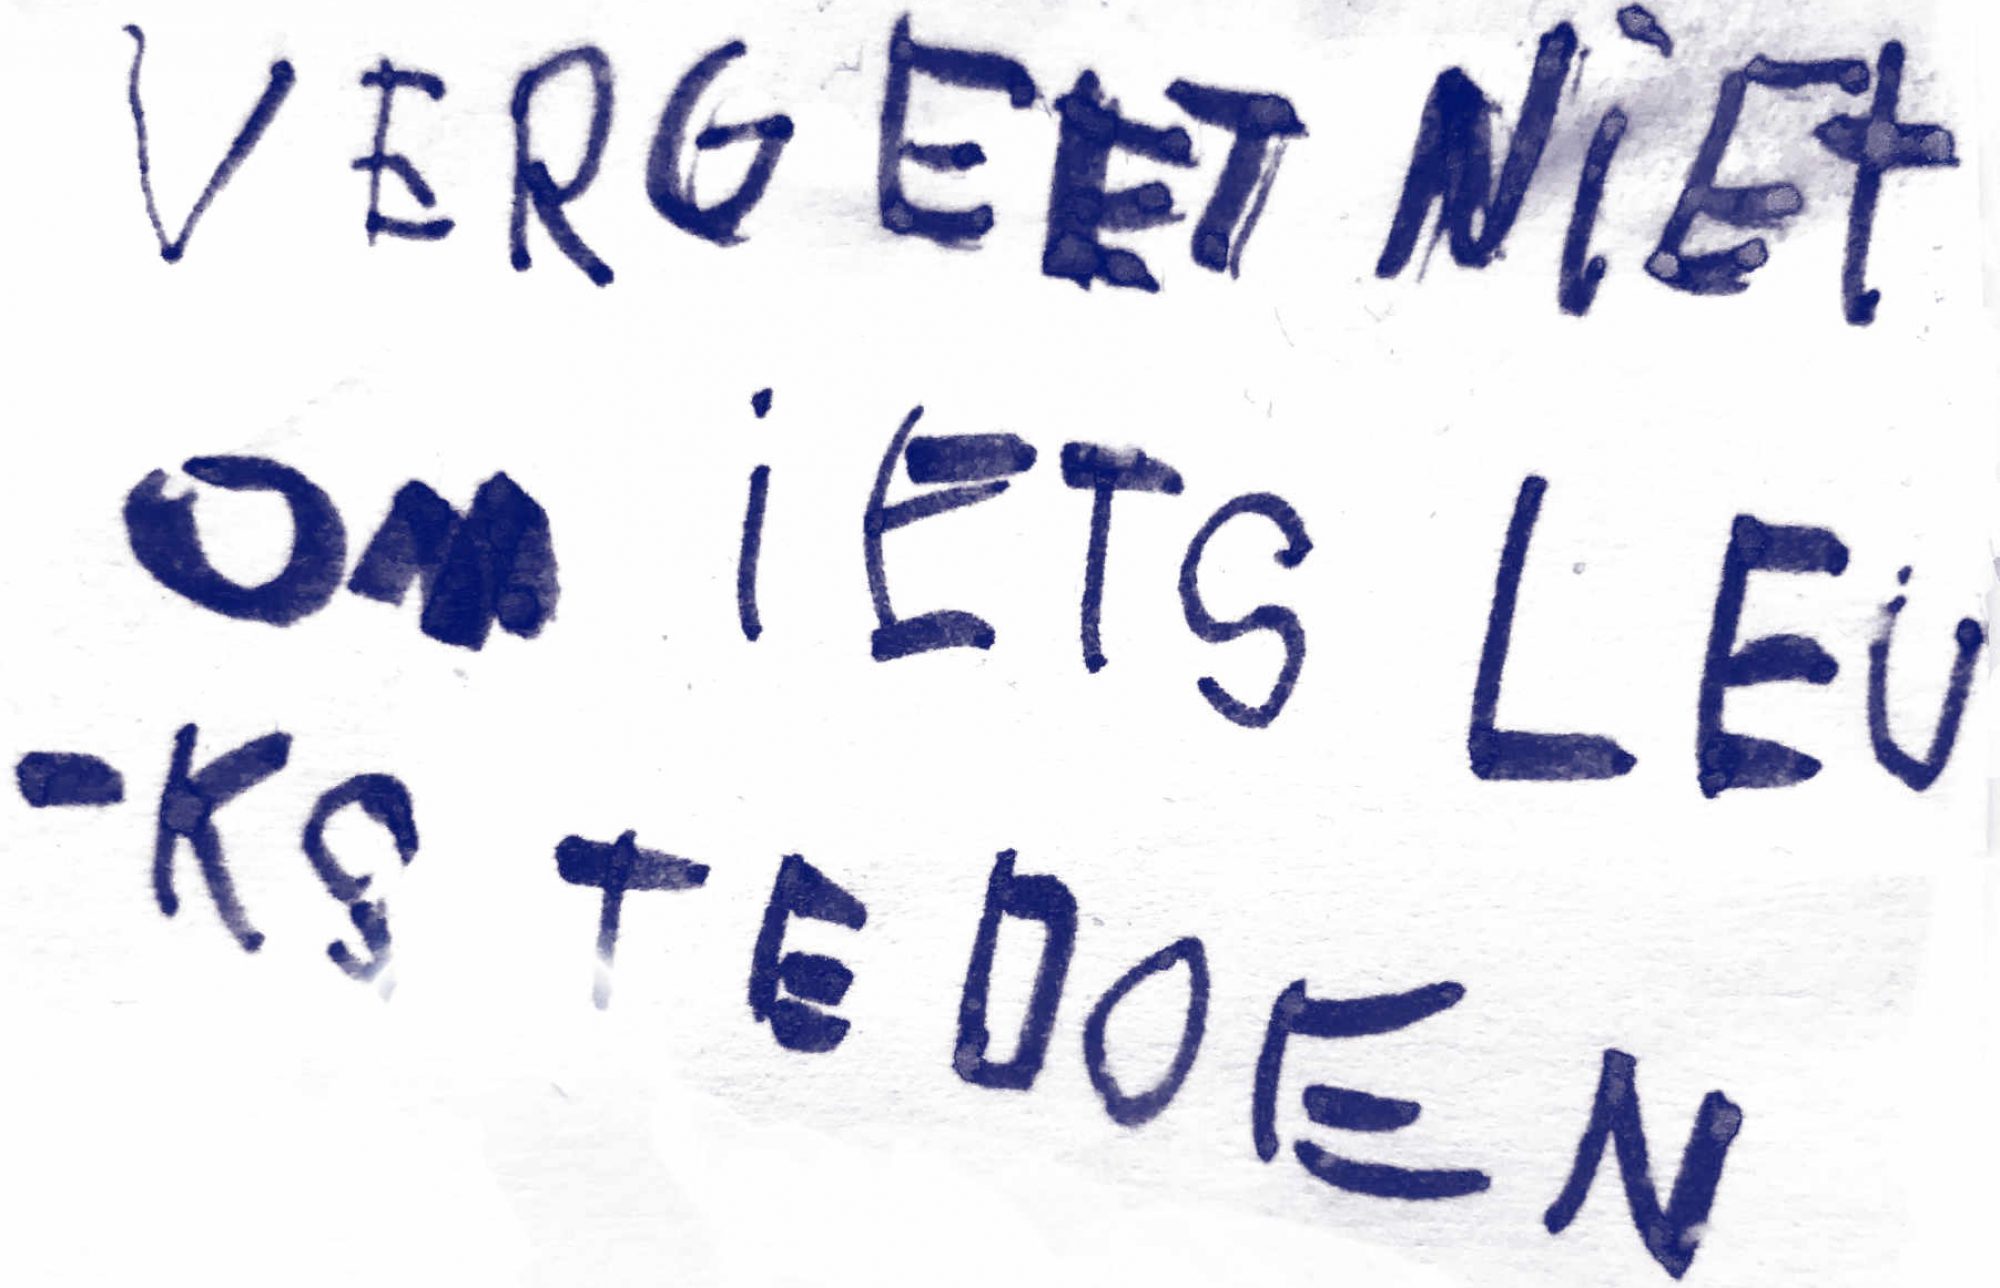 VERGEET NiET
OM iETS LEU
-KS TE DOEN